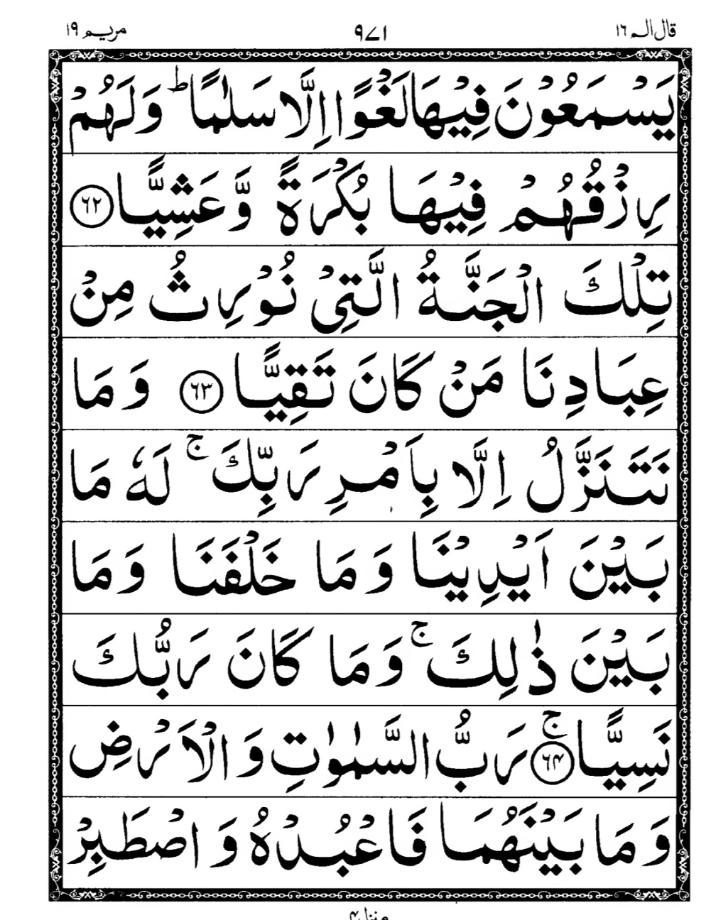 قال الم ١٦ ٩٧١ مريم ١٩
يَسْمَعُوْنَ فِيْهَا لَغْوًا اِلَّا سَلٰمًا ؕ وَلَهُمْ
رِزْقُهُمْ فِيْهَا بُكْرَةً وَّعَشِيًّا ﴿۶۲﴾
تِلْكَ الْجَنَّةُ الَّتِيْ نُوْرِثُ مِنْ
عِبَادِنَا مَنْ كَانَ تَقِيًّا ﴿۶۳﴾ وَمَا
نَتَنَزَّلُ اِلَّا بِاَمْرِ رَبِّكَ ۚ لَهٗ مَا
بَيْنَ اَيْدِيْنَا وَمَا خَلْفَنَا وَمَا
بَيْنَ ذٰلِكَ ۚ وَمَا كَانَ رَبُّكَ
نَسِيًّا ﴿۶۴﴾ ۚ رَبُّ السَّمٰوٰتِ وَالْاَرْضِ
وَمَا بَيْنَهُمَا فَاعْبُدْهُ وَاصْطَبِرْ
منزل ۴